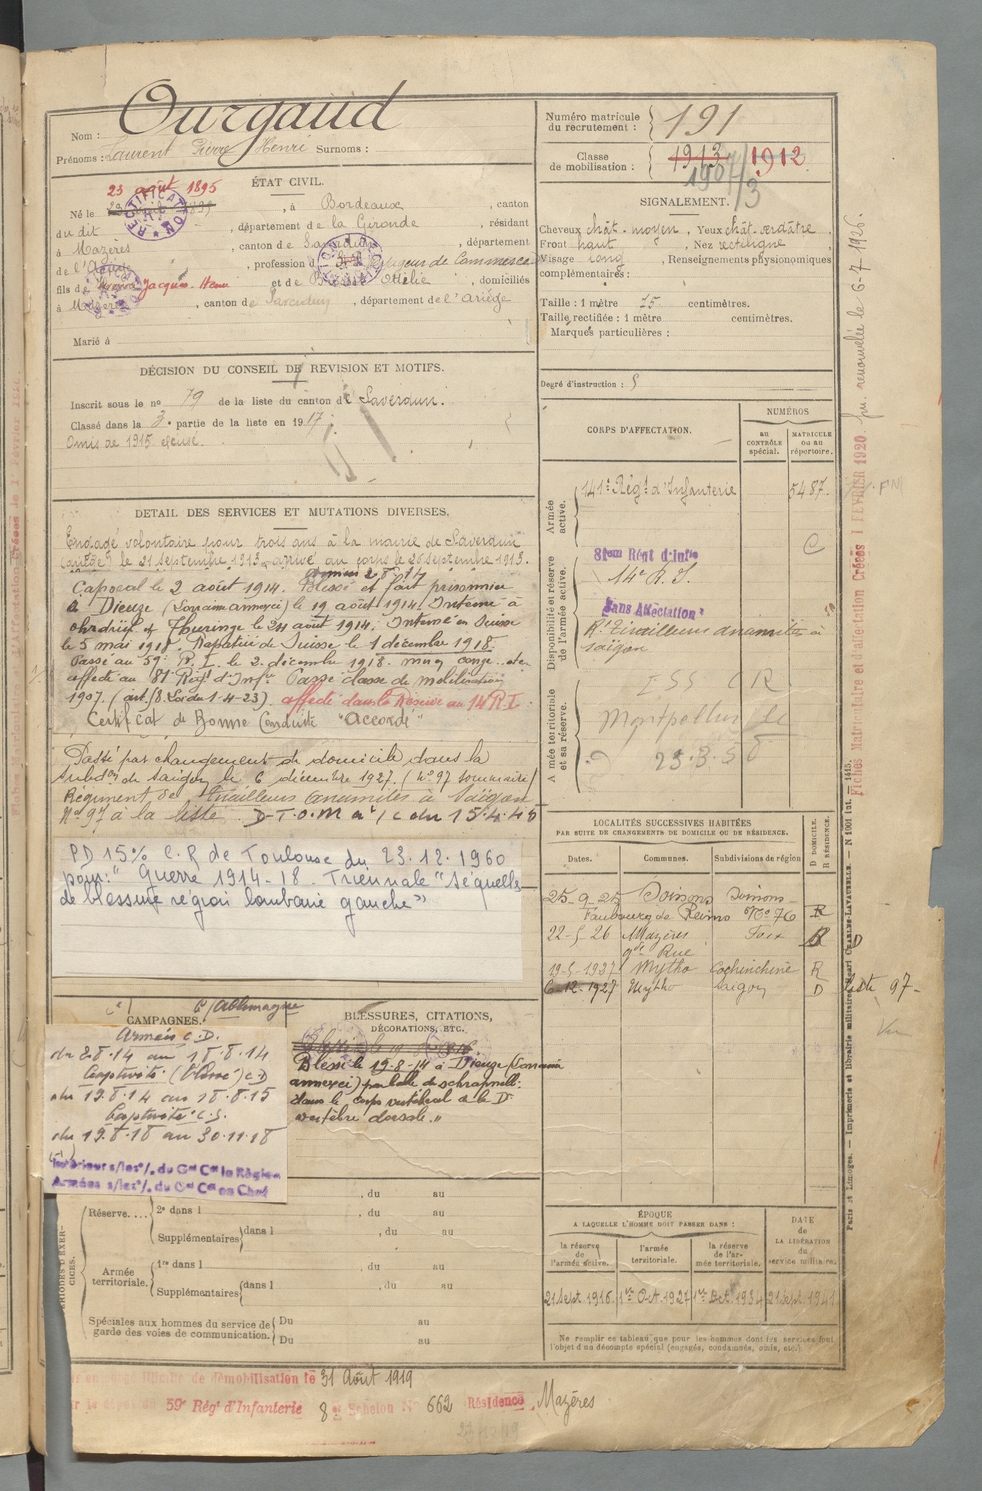 Ourgaud
Nom :
Prénoms : Laurent Pierre Henri Surnoms :
Numéro matricule du recrutement : 191
Classe de mobilisation : 1913 1912
1907/3
ÉTAT CIVIL.
23 août 1895
RECTIFICATION
Né le , à Bordeaux, canton
du dit , département de la Gironde , résidant
à Mazères , canton de Saverdun , département
de l' , profession de Voyageur de Commerce
fils de Jacques-Henri et de Othélie , domiciliés
à Mazères , canton de Saverdun , département de l'Ariège
Marié à
SIGNALEMENT.
Cheveux chât. moyen , Yeux chât. verdâtre
Front haut , Nez rectiligne
Visage long , Renseignements physionomiques
complémentaires :
Taille : 1 mètre 75 centimètres.
Taille rectifiée : 1 mètre centimètres.
Marques particulières :
Degré d'instruction : 5
DÉCISION DU CONSEIL DE RÉVISION ET MOTIFS.
Inscrit sous le no 79 de la liste du canton de Saverdun.
Classé dans la 3e partie de la liste en 1917.
Omis de 1915 excusé.
DÉTAIL DES SERVICES ET MUTATIONS DIVERSES.
Engagé volontaire pour trois ans à la mairie de Saverdun
(Ariège) le 21 septembre 1913, arrivé au corps le 26 septembre 1913.
Caporal le 2 août 1914. Blessé et fait prisonnier
à Dieuze (Lorraine annexée) le 19 août 1914. Interné à
Ohrdruf Thuringe le 24 août 1914. Interné en Suisse
le 5 mai 1918. Rapatrié de Suisse le 1 décembre 1918.
Passé au 59e R.I. le 2 décembre 1918.
affecté au 81 Régt d'Infie Passé classe de mobilisation
1907. (art. 58 Loi du 1-4-23) affecté dans la Réserve au 14 R.I.
Certificat de Bonne Conduite "Accordé"
Passé par changement de domicile dans la
Subdon de Saïgon le 6 décembre 1927. (No 97 sommaire)
Régiment de Tirailleurs annamites à Saïgon
No 97 à la liste. D-T-O-M du 15.4.45
PD 15% C.R de Toulouse du 23.12.1960
pour: "Guerre 1914-18. Triennale "Séquelles
de blessure région lombaire gauche"
CORPS D'AFFECTATION.
NUMÉROS
au CONTRÔLE spécial.
MATRICULE ou au répertoire.
Armée active.
141e Régt d'Infanterie 5487.
Disponibilité et réserve de l'armée active.
81eme Régt d'Infie
14e R.I.
Sans Affectation
Rt Tirailleurs annamites à
Saïgon
Armée territoriale et sa réserve.
Montpellier
23.3.50
LOCALITÉS SUCCESSIVES HABITÉES
PAR SUITE DE CHANGEMENTS DE DOMICILE OU DE RÉSIDENCE.
D DOMICILE. R RÉSIDENCE.
Dates. Communes. Subdivisions de région
25-9-25 Soissons Soissons
Faubourg de Reims No 76 R
22-5-26 Mazères Foix D
gde Rue
19-5-1927 Mytho Cochinchine R
6-12-1927 Mytho Saigon D
Liste 97-
CAMPAGNES.
C/Allemagne
Armées C.D.
du 2.8.14 au 18.8.14
Captivité (blessé) C.D
du 19.8.14 au 18.8.15
Captivité C.S.
du 19.8.15 au 30.11.18
Intérieur s/les o/. du Gal Ct la Région
Armées s/les o/. du Gal Ct en Chef
BLESSURES, CITATIONS,
DÉCORATIONS, ETC.
Blessé le 19-8-14 à Dieuze (Lorraine
annexée) par balle de schrapnell.
dans le corps vertébral de la D.
vertèbre dorsale."
Réserve....
2e dans l , du au
Supplémentaires dans l , du au
Armée territoriale.
1re dans l , du au
Supplémentaires dans l , du au
Spéciales aux hommes du service de garde des voies de communication.
Du au
Du au
ÉPOQUE
A LAQUELLE L'HOMME DOIT PASSER DANS :
la réserve de l'armée active.
l'armée territoriale.
la réserve de l'armée territoriale.
DATE de LA LIBÉRATION du service militaire.
21 Sept. 1916. 1er Oct. 1927 1er Oct. 1934 21 Sept. 1941
Ne remplir ce tableau que pour les hommes dont les services font
l'objet d'un décompte spécial (engagés, condamnés, omis, etc.)
de démobilisation le 31 Août 1919
59e Rég' d'Infanterie 8 e Echelon No 662 Résidence Mazères
Fiches Matriculaire et d'affectation Créées 1 FÉVRIER 1920
renouvelée le 6-7-1926.
Paris et Limoges. — Imprimerie et librairie militaires Henri CHARLES-LAVAUZELLE.